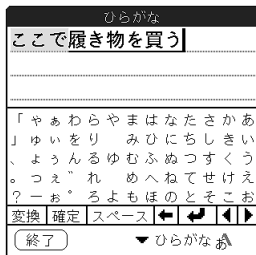 ひらがな
ここで履き物を買う
「ゃぁわらやまはなたさかあ
」ゅぃをり みひにちしきい
、ょぅんるゆむふぬつすくう
。っぇ゛れ めへねてせけえ
？ーぉ゜ろよもほのとそこお
変換 確定 スペース
終了 ▼ひらがな あ